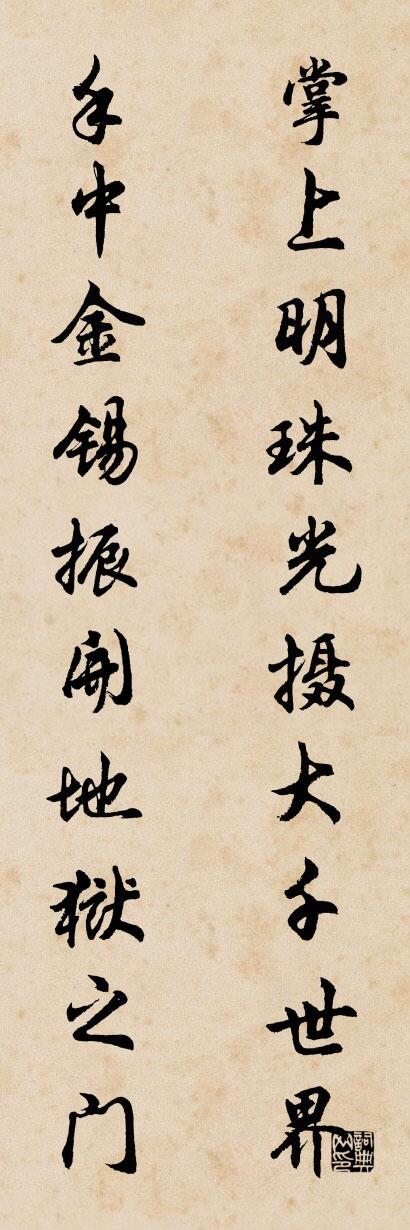 掌上明珠光摄大千世界
手中金锡振開地獄之门